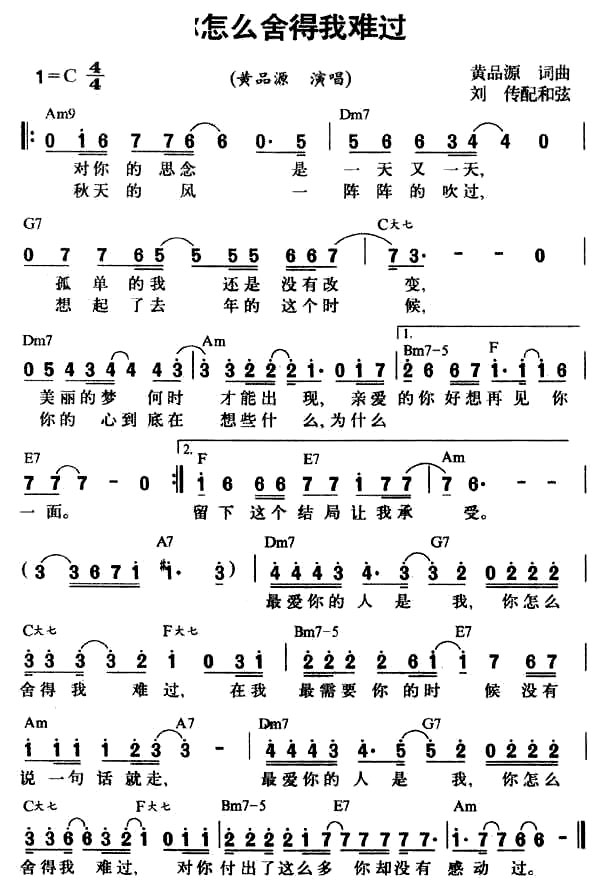 你怎么舍得我难过
1=C 4/4 (黄品源 演唱) 黄品源 词曲
刘 传配和弦
Am9 Dm7
0 1 6 7 7 6 6 0· 5 5 6 6 3 4 4 0
对你 的 思念 是 一 天 又 一天,
秋天 的 风 一 阵阵 的 吹过,
G7 C大七
0 7 7 6 5 5 5 5 6 6 7 7 3· - - 0
孤 单 的我 还是 没有改 变,
想 起 了去 年的 这个时 候,
Dm7 Am 1. Bm7-5 F
0 5 4 3 4 4 4 3 3 3 2 2 2 1· 0 1 7 2 6 6 7 1 1 1 6
美丽的梦 何时 才能出 现, 亲爱 的你好想再见 你
你的 心到底在 想些什 么,为什么
E7 2. F E7 Am
7 7 7 - 0 1 6 6 6 7 7 1 7 7 7 6· - -
一 面。 留下 这个 结局 让我承 受。
A7 Dm7 G7
(3 3 6 7 1 #1· 3) 4 4 4 3 4· 3 3 2 0 2 2 2
最爱你的 人 是 我, 你怎么
C大七 F大七 Bm7-5 E7
3 3 3 3 2 1 0 3 1 2 2 2 2 6 1 1 7 6 7
舍得 我 难 过, 在我 最需要 你 的时 候 没有
Am A7 Dm7 G7
1 1 1 1 2 3 3 4 4 4 3 4· 5 5 2 0 2 2 2
说 一句 话就走, 最爱你的 人 是 我, 你怎么
C大七 F大七 Bm7-5 E7 Am
3 3 6 6 3 2 1 0 1 1 2 2 2 2 1 7 7 7 7 7 7 1· 7 7 6 6 -
舍得我 难过, 对你 付出了这么多 你却没有 感动 过。